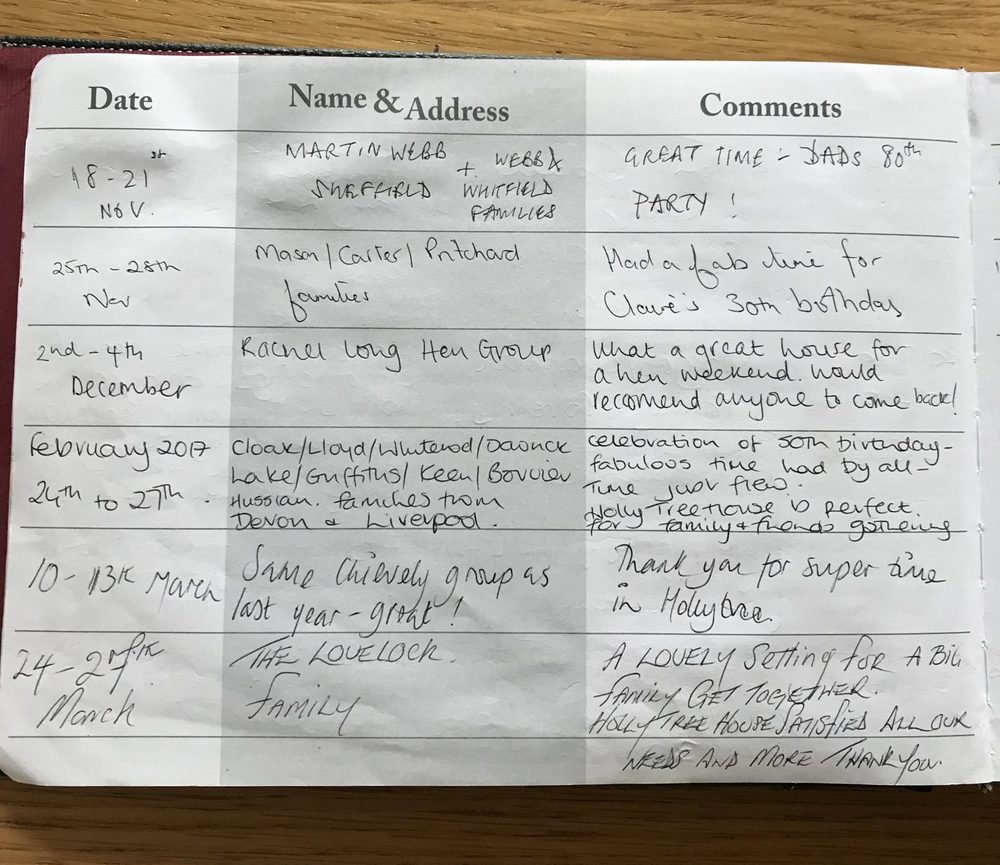 Date Name & Address Comments
18-21st
NOV.
MARTIN WEBB
SHEFFIELD
+ WEBB &
WHITFIELD
FAMILIES
GREAT TIME - DADS 80th
PARTY !
25th - 28th
Nov
Mason/Carter/Pritchard
families
Had a fab time for
Claire's 30th birthday
2nd - 4th
December
Rachel Long Hen Group
What a great house for
a hen weekend. Would
recomend anyone to come back!
February 2017
24th to 27th.
Cloak/Lloyd/
Lake/Griffiths/Keen/
families from
Devon & Liverpool.
Celebration of 50th birthday -
fabulous time had by all -
Time just flew.
Holly Tree House is perfect.
for family & friends gathering
10 - 13th March
Same Chievely group as
last year - great !
Thank you for super time
in Hollytree.
24 -
March
THE LOVELOCK.
FAMILY
A LOVELY Setting for A BIG
FAMILY GET TOGETHER.
HOLLY TREE HOUSE SATISFIED ALL OUR
NEEDS AND MORE THANK YOU.